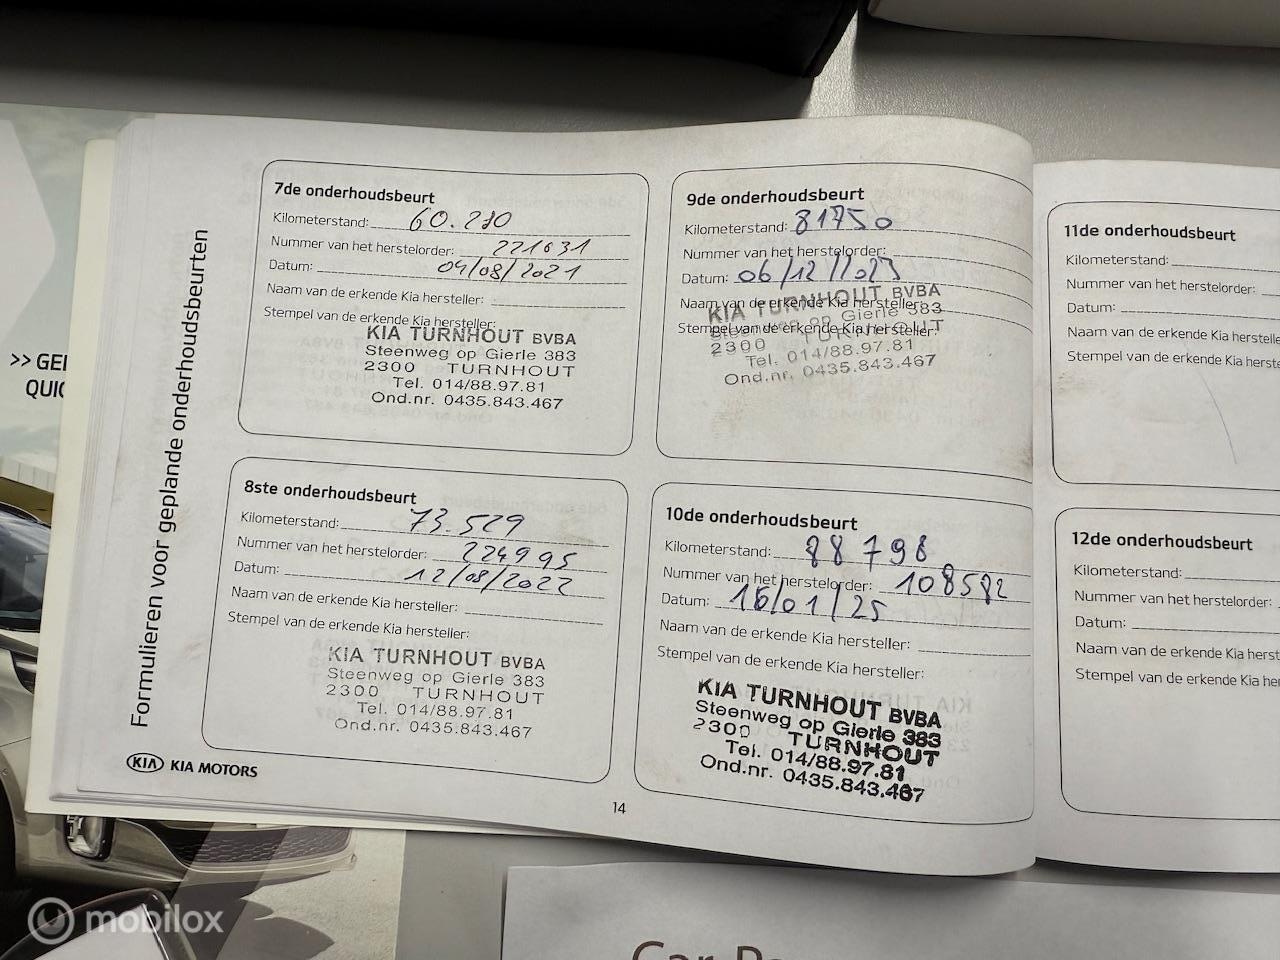 Formulieren voor geplande onderhoudsbeurten
7de onderhoudsbeurt
Kilometerstand: 60.210
Nummer van het herstelorder: 221631
Datum: 04/08/2021
Naam van de erkende Kia hersteller:
Stempel van de erkende Kia hersteller:
KIA TURNHOUT BVBA
Steenweg op Gierle 383
2300 TURNHOUT
Tel. 014/88.97.81
Ond.nr. 0435.843.467
8ste onderhoudsbeurt
Kilometerstand: 73.529
Nummer van het herstelorder: 224995
Datum: 12/08/2022
Naam van de erkende Kia hersteller:
Stempel van de erkende Kia hersteller:
KIA TURNHOUT BVBA
Steenweg op Gierle 383
2300 TURNHOUT
Tel. 014/88.97.81
Ond.nr. 0435.843.467
9de onderhoudsbeurt
Kilometerstand: 81750
Nummer van het herstelorder:
Datum: 06/12/
Naam van de erkende Kia hersteller:
Stempel van de erkende Kia hersteller:
KIA TURNHOUT BVBA
Steenweg op Gierle 383
2300 TURNHOUT
Tel. 014/88.97.81
Ond.nr. 0435.843.467
10de onderhoudsbeurt
Kilometerstand: 88798
Nummer van het herstelorder: 108582
Datum: 16/01/25
Naam van de erkende Kia hersteller:
Stempel van de erkende Kia hersteller:
KIA TURNHOUT BVBA
Steenweg op Gierle 383
2300 TURNHOUT
Tel. 014/88.97.81
Ond.nr. 0435.843.467
11de onderhoudsbeurt
Kilometerstand:
Nummer van het herstelorder:
Datum:
Naam van de erkende Kia herstelle
Stempel van de erkende Kia herste
12de onderhoudsbeurt
Kilometerstand:
Nummer van het herstelorder:
Datum:
Naam van de erkende Kia herst
Stempel van de erkende Kia
KIA KIA MOTORS
14
>> GE
QUIC
Car
mobilox